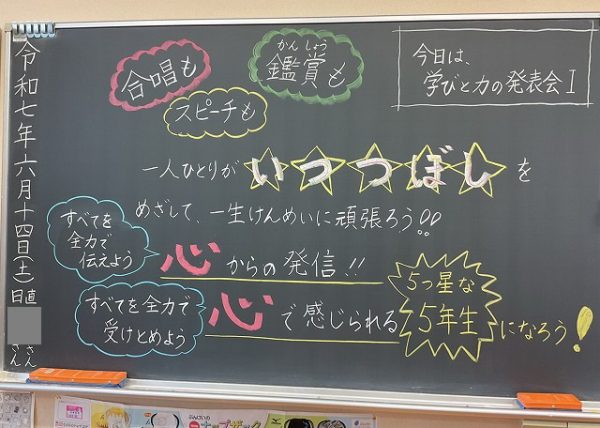 令和七年六月十四日(土)
日直
さん
さん
合唱も
かんしょう
鑑賞も
スピーチも
今日は、
学びと力の発表会Ⅰ
一人ひとりがいつつぼしを
めざして、一生けんめいに頑張ろう!!
すべてを
全力で
伝えよう
心からの発信!!
すべてを全力で
受けとめよう
心で感じられる
5つ星な
5年生
になろう!
ナップザック